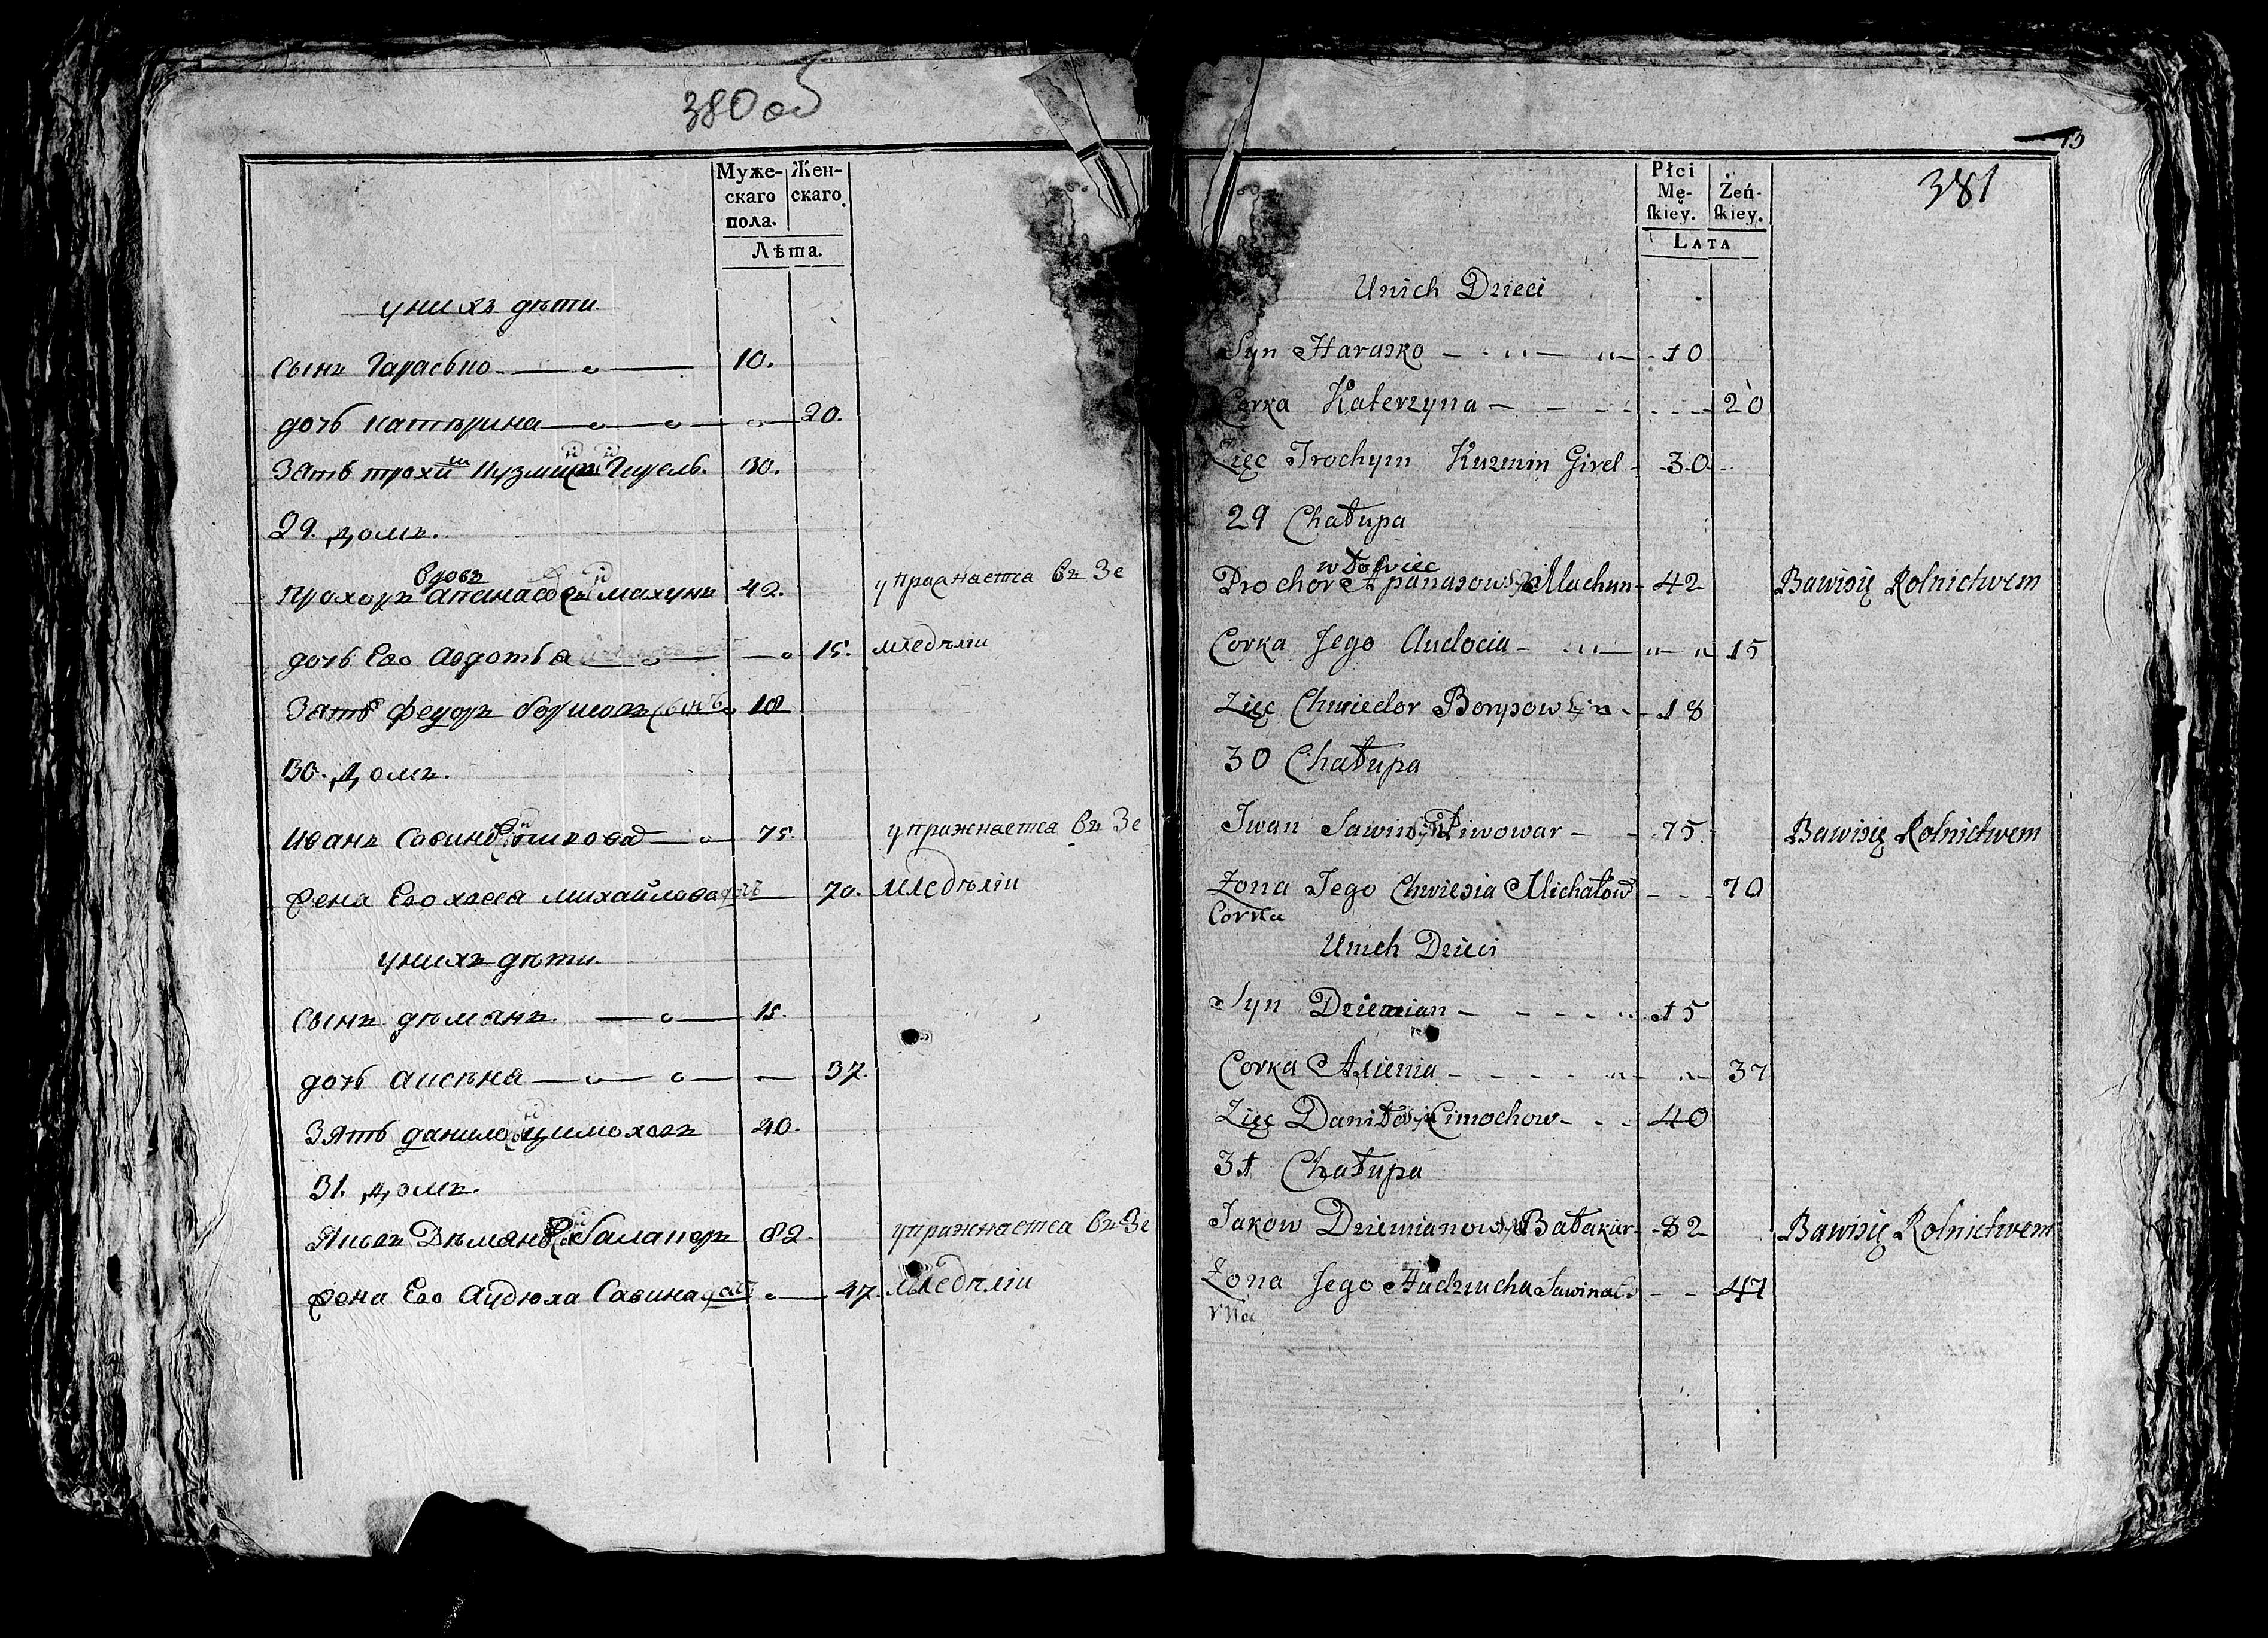 380 об
Муже-
скаго
пола.
Жен-
скаго.
Лѣта.
у нихъ дѣти.
сынъ Гарасько 10.
дочь катерина 20.
Зять трохим Кузмин Гирель. 30.
29. домъ.
вдовъ
прохоръ апанасовъ махунъ 42. упражнается въ Зе
дочь Его авдотья 15. мледѣліи
Зять федоръ борисовъ сынъ 18
30. домъ.
иванъ савинъ пивовар 75. упражнается въ Зе
жена Его хвеся михайлова дочь 70. мледѣліи
у нихъ дѣти.
сынъ дѣмянъ. 15.
дочь аксеня 37.
Зять данило цимоховъ 40.
31. домъ.
Яковъ Дѣмяновъ балакеръ 82. упражнается въ Зе
жена Его аудюха Савина дочь 47. мледѣліи
13
381
Płci
Mę-
skiey.
Żeń-
skiey.
LATA
Unich Dzieci
Syn Harasko 10
Corka Katerzyna 20
Zięc Trochym Kuzmin Girel 30
29 Chałupa
wdowiec
Prochor Apanasow Syn Machun 42 Bawisię Rolnictwem
Corka Jego Audocia 15
Zięc Chwiedor Borysow Syn 18
30 Chałupa
Iwan Sawin Syn Piwowar 75 Bawisię Rolnictwem
Żona Jego Chwiesia Michałow 70
Corka
Unich Dzieci
Syn Dziemian 15
Corka Axienia 37
Zięc Daniło Syn Cimochow 40
31 Chałupa
Jakow Dziemianow Syn Bałakier 82 Bawisię Rolnictwem
Żona Jego Audziucha Sawina Co 47
rka